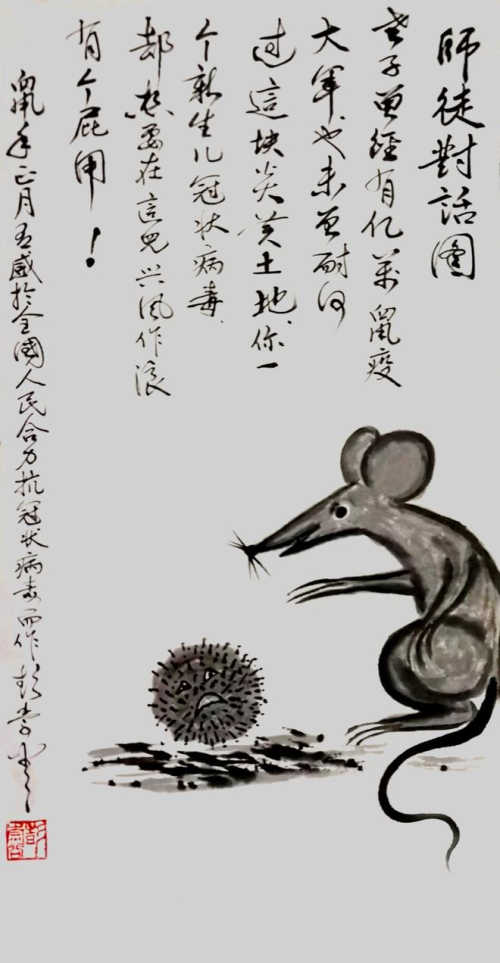 師徒對話图
老子曾經有亿萬鼠疫
大軍、也未曾耐何
过這块炎黄土地、你一
个新生儿冠状病毒、
却想要在這兒兴风作浪
有个屁用！
鼠年正月有感於全國人民合力抗冠状病毒而作 彭